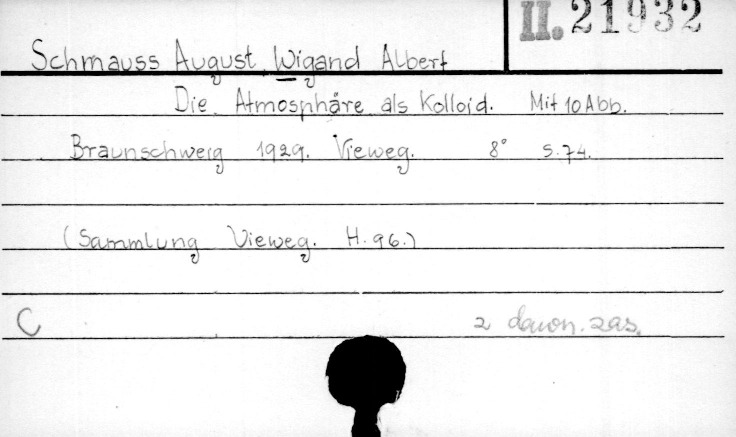 II. 21932
Schmauss August, Wigand Albert
Die Atmosphäre als Kolloid. Mit 10 Abb.
Braunschweig 1929. Vieweg. 8° S. 74.
(Sammlung Vieweg. H. 96.)
C z dawn. zas.